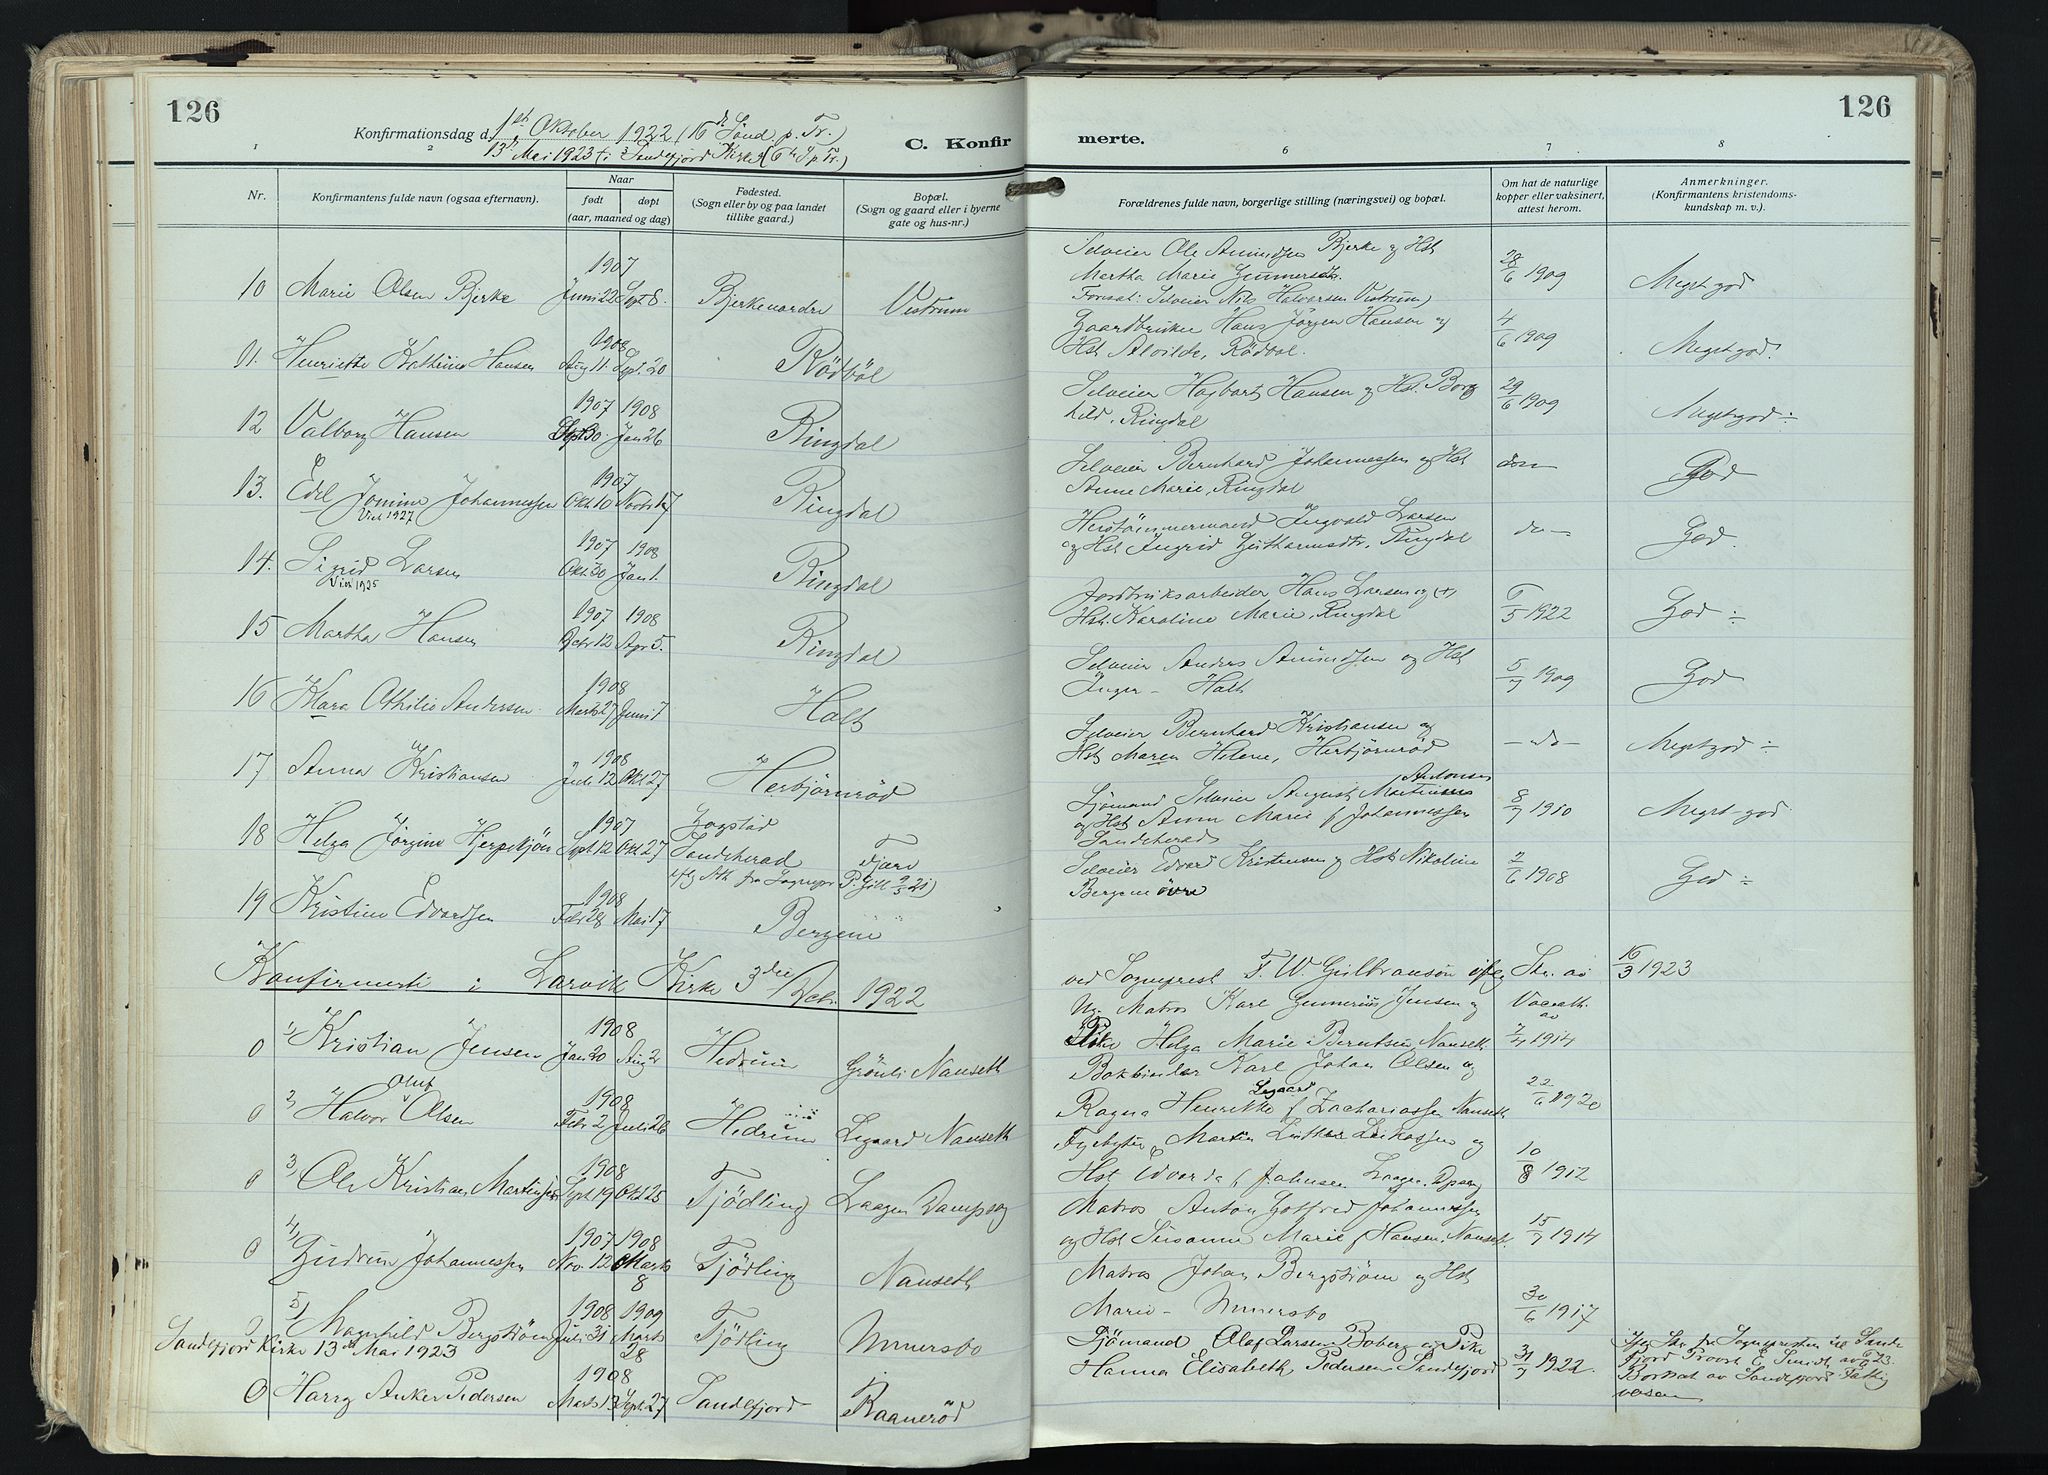 126
Konfirmationsdag d. 1ste Oktober 1922 (16 d. Sönd. p. Tr.)
13de Mai 1923 i Sandefjord Kirke
C. Konfirmerte.
126
1 2 6 7 8
Nr.
Konfirmantens fulde navn (ogsaa efternavn).
Naar
født døpt
(aar, maaned og dag)
Fødested.
(Sogn eller by og paa landet
tillike gaard.)
Bopæl.
(Sogn og gaard eller i byerne
gate og hus-nr.)
Forældrenes fulde navn, borgerlige stilling (næringsvei) og bopæl.
Om hat de naturlige
kopper eller vaksinert,
attest herom.
Anmerkninger.
(Konfirmantens kristendoms-
kundskap m. v.).
Selveier Ole Amundsen Bjerke og Hst
1907
10 Marie Olsen Bjerke Juni 22 Sept 8. Bjerkenordre Vestrum
Martha Marie Gunnersdt. 28/6 1909 Meget god
Forsat: Selveier Nils Halvorsen Vestrum)
1908
11. Henriette Kathrine Hansen Aug 11. Sept. 20 Rödböl
Gaardbruker Hans Jørgen Hansen og
Hst Alvilde, Rödböl. 4/6 1909 Meget god.
1907 1908
12 Valborg Hansen Sept 30. Jan 26 Ringdal
Selveier Hagbart Hansen og Hst. Borg
hild, Ringdal 29/6 1909 Meget god ÷
1907
13. Edel Jomine Johannessen Okt. 10 Novbr 17 Ringdal
Viet 1927
Selveier Bernhard Johannessen og Hst
Anne Marie, Ringdal do — God
1907 1908
14. Sigrid Larsen Okt. 30 Jan 1. Ringdal
Viet 1925
Ingvald Larsen
og Hst Ingrid Guthormsdtr. Ringdal do — God.
1907 1908
15 Martha Hansen 12 Apr 5. Ringdal
Jordbruksarbeider Hans Larsen og (+)
Hst. Karoline Marie, Ringdal /5 1922 God ÷
1908
16 Klara Othilie Andersen Marts 27 Juni 7 Holt
Selveier Anders Amundsen og Hst
Inger — Holt 5/7 1909 God
1908
17 Anna Kristiansen Juli 12 Okt 27 Herbjörnröd
Selveier Bernhard Kristiansen og
Hst Maren Helene, Herbjörnröd — do — Meget god ÷
1907
18 Helga Jörgine Hjerpekjön Sept 12 Okt 27 Sandeherad Fjære
Sjömand Selveier August Martinius Antonsen
og Hst Anna Marie f Johannessen 8/7 1910 Meget god
Sandeherad
1908
19 Kristine Edvardsen Febr 28 Mai 17 Bergene
Selveier Edvard Kristensen og Hst Nikoline
Bergene övre /6 1908 God ÷
Konfirmerte i Larvik Kirke 3die Dcbr. 1922
ved Sogneprest F. W. Gulbranson ifølg Skr. av 16/3 1923
1908
0 1) Kristian Jensen Jan 20 Aug 2 Hedrum Grönli Nanseth
Ug. Matros Karl Gunnerius Jensen og Vacc.att. av
Pike Helga Marie Berntsen Nanseth 7/4 1914
1908
0 2) Halvor Oluf Olsen Feb 2 Juli 26 Hedrum Legaard Nanseth
Bokbinder Karl Johan Olsen og
Ragna Henrikke f Zachariassen Legaard Nanseth 22/6 1920
1908
0 3) Ole Kristian Martinsen Sept 19 Okt 25 Tjödling Laagen Dampsag
Fyrbøter Martin Luther og
Hst Edvarda f Johnsen Laagen Dpsag 10/8 1912
1907 1908
0 4) Gudrun Johannessen Nov. 12 Marts 8 Tjödling Nanseth
Matros Anton Gotfred Johannessen
og Hst Susanne Marie f Hansen. Nanseth. 15/7 1914
1908 1909
5) Magnhild Bergström Juli 31 Marts 28 Tjödling Unnersbo
Matros Johan Bergström og Hst
Marie — Unnersbo 30/6 1917
Sandefjord Kirke 13de Mai 1923
1908
0 Harry Anker Pedersen Marts 13 Sept. 27 Sandefjord Raanerød
Sjömand Olaf Larsen Boberg og Pike
Hanna Elisabeth Pedersen Sandefjord 31/7 1922.
Ifg Skr. fr. Sognepresten til Sande
fjord Provst E. Smidth av
Bortsat av Sandefjord Fattig
væsen